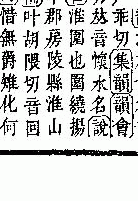 乖切集韻韻會
𠀤音懷水名說
淮圍也圍繞揚
郡房陵縣淮山
叶胡隈切音回
惜無爵雉化何